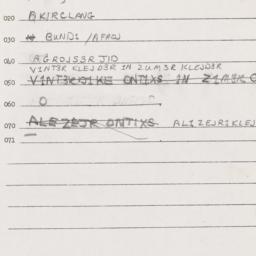 020 AKIRCLANG
030 BUNDI /AFROJ
040 AGROJSER JID
VINTER KLEJDER IN ZUMER KLEJDER
050 VINTERDIKE ONTIXS IN ZIMER
060 O
070 ALEZEJR ONTIXS ALIZEJRIKLEJ
071